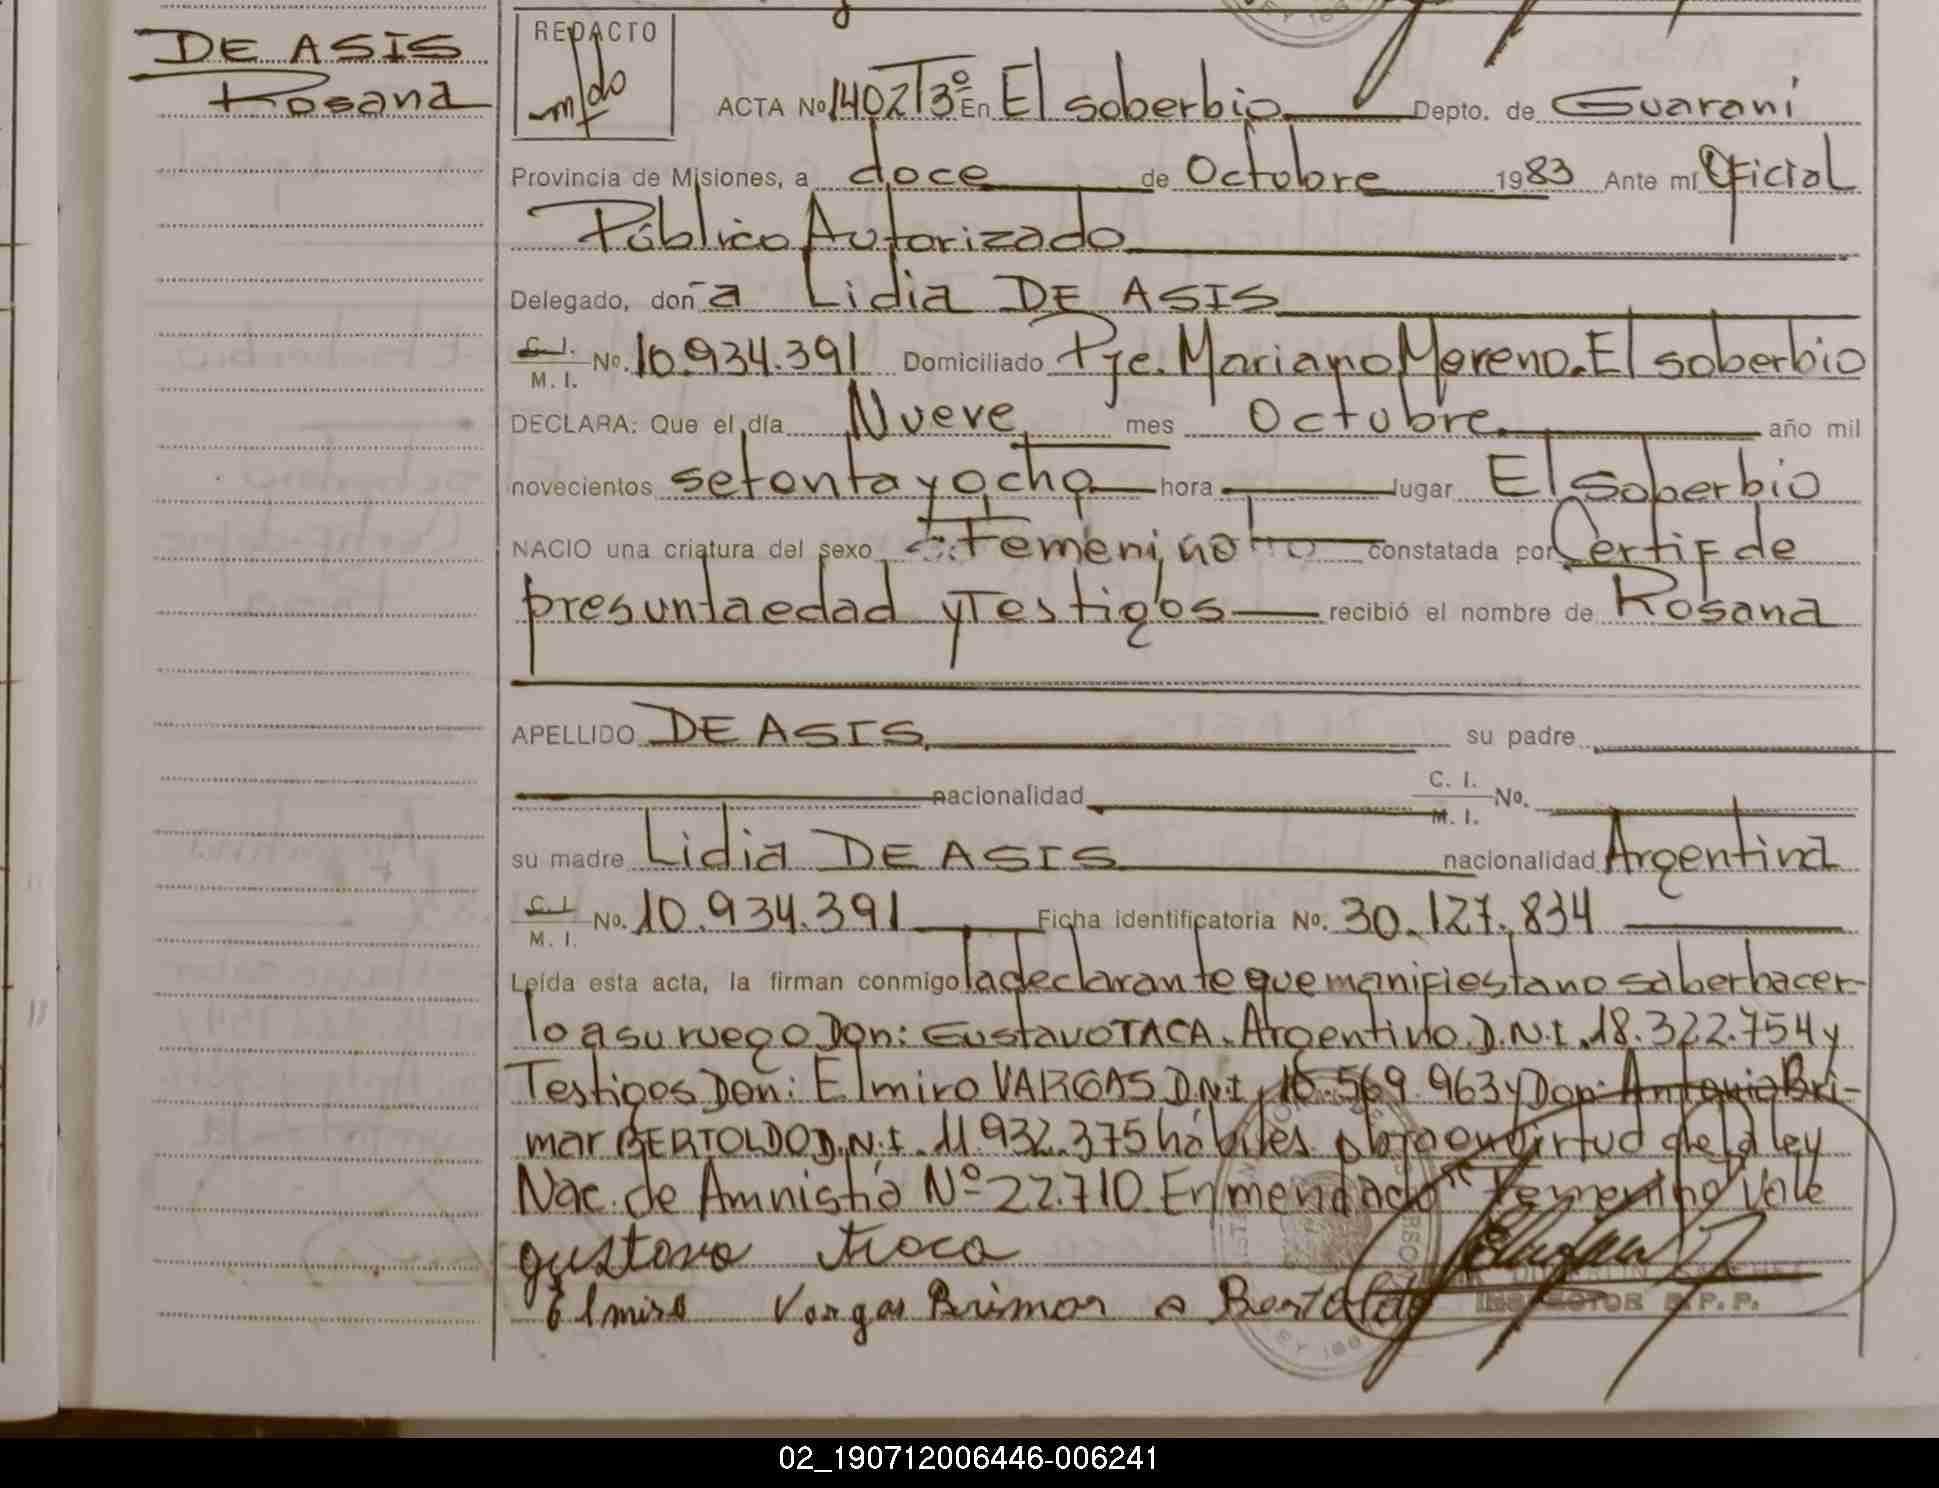 DE ASIS
Rosana
REDACTO
ACTA No 1402 T3º En El soberbio Depto. de Guaraní
Provincia de Misiones, a doce de Octubre 1983 Ante mí Oficial
Público Autorizado
Delegado, doña Lidia DE ASIS
C. I. M. I. No. 10.934.391 Domiciliado Pje. Mariano Moreno. El soberbio
DECLARA: Que el día Nueve mes Octubre año mil
novecientos setenta y ocho hora lugar El Soberbio
NACIO una criatura del sexo Femenino constatada por Certif de
presunta edad y Testigos recibió el nombre de Rosana
APELLIDO DE ASIS su padre
nacionalidad C. I. M. I. No.
su madre Lidia DE ASIS nacionalidad Argentina
C. I. M. I. No. 10.934.391 Ficha identificatoria No. 30.127.834
Leída esta acta, la firman conmigo la declarante que manifiesta no saber hacer-
lo a su ruego Don: Gustavo TACA. Argentino. D.N.I. 18.322.754 y
Testigos Don: Elmiro VARGAS D.N.I. 10.569.963 y Don: Antonio Bri-
mar BERTOLDO D.N.I. 11.932.375 hábiles en virtud de la ley
Nac. de Amnistia Nº 22.710 Enmendado "Femenino" Vale
gustavo
Elmiro Vargas Brimar a Bertoldo
INSPECTOR R. P. P.
02_190712006446-006241